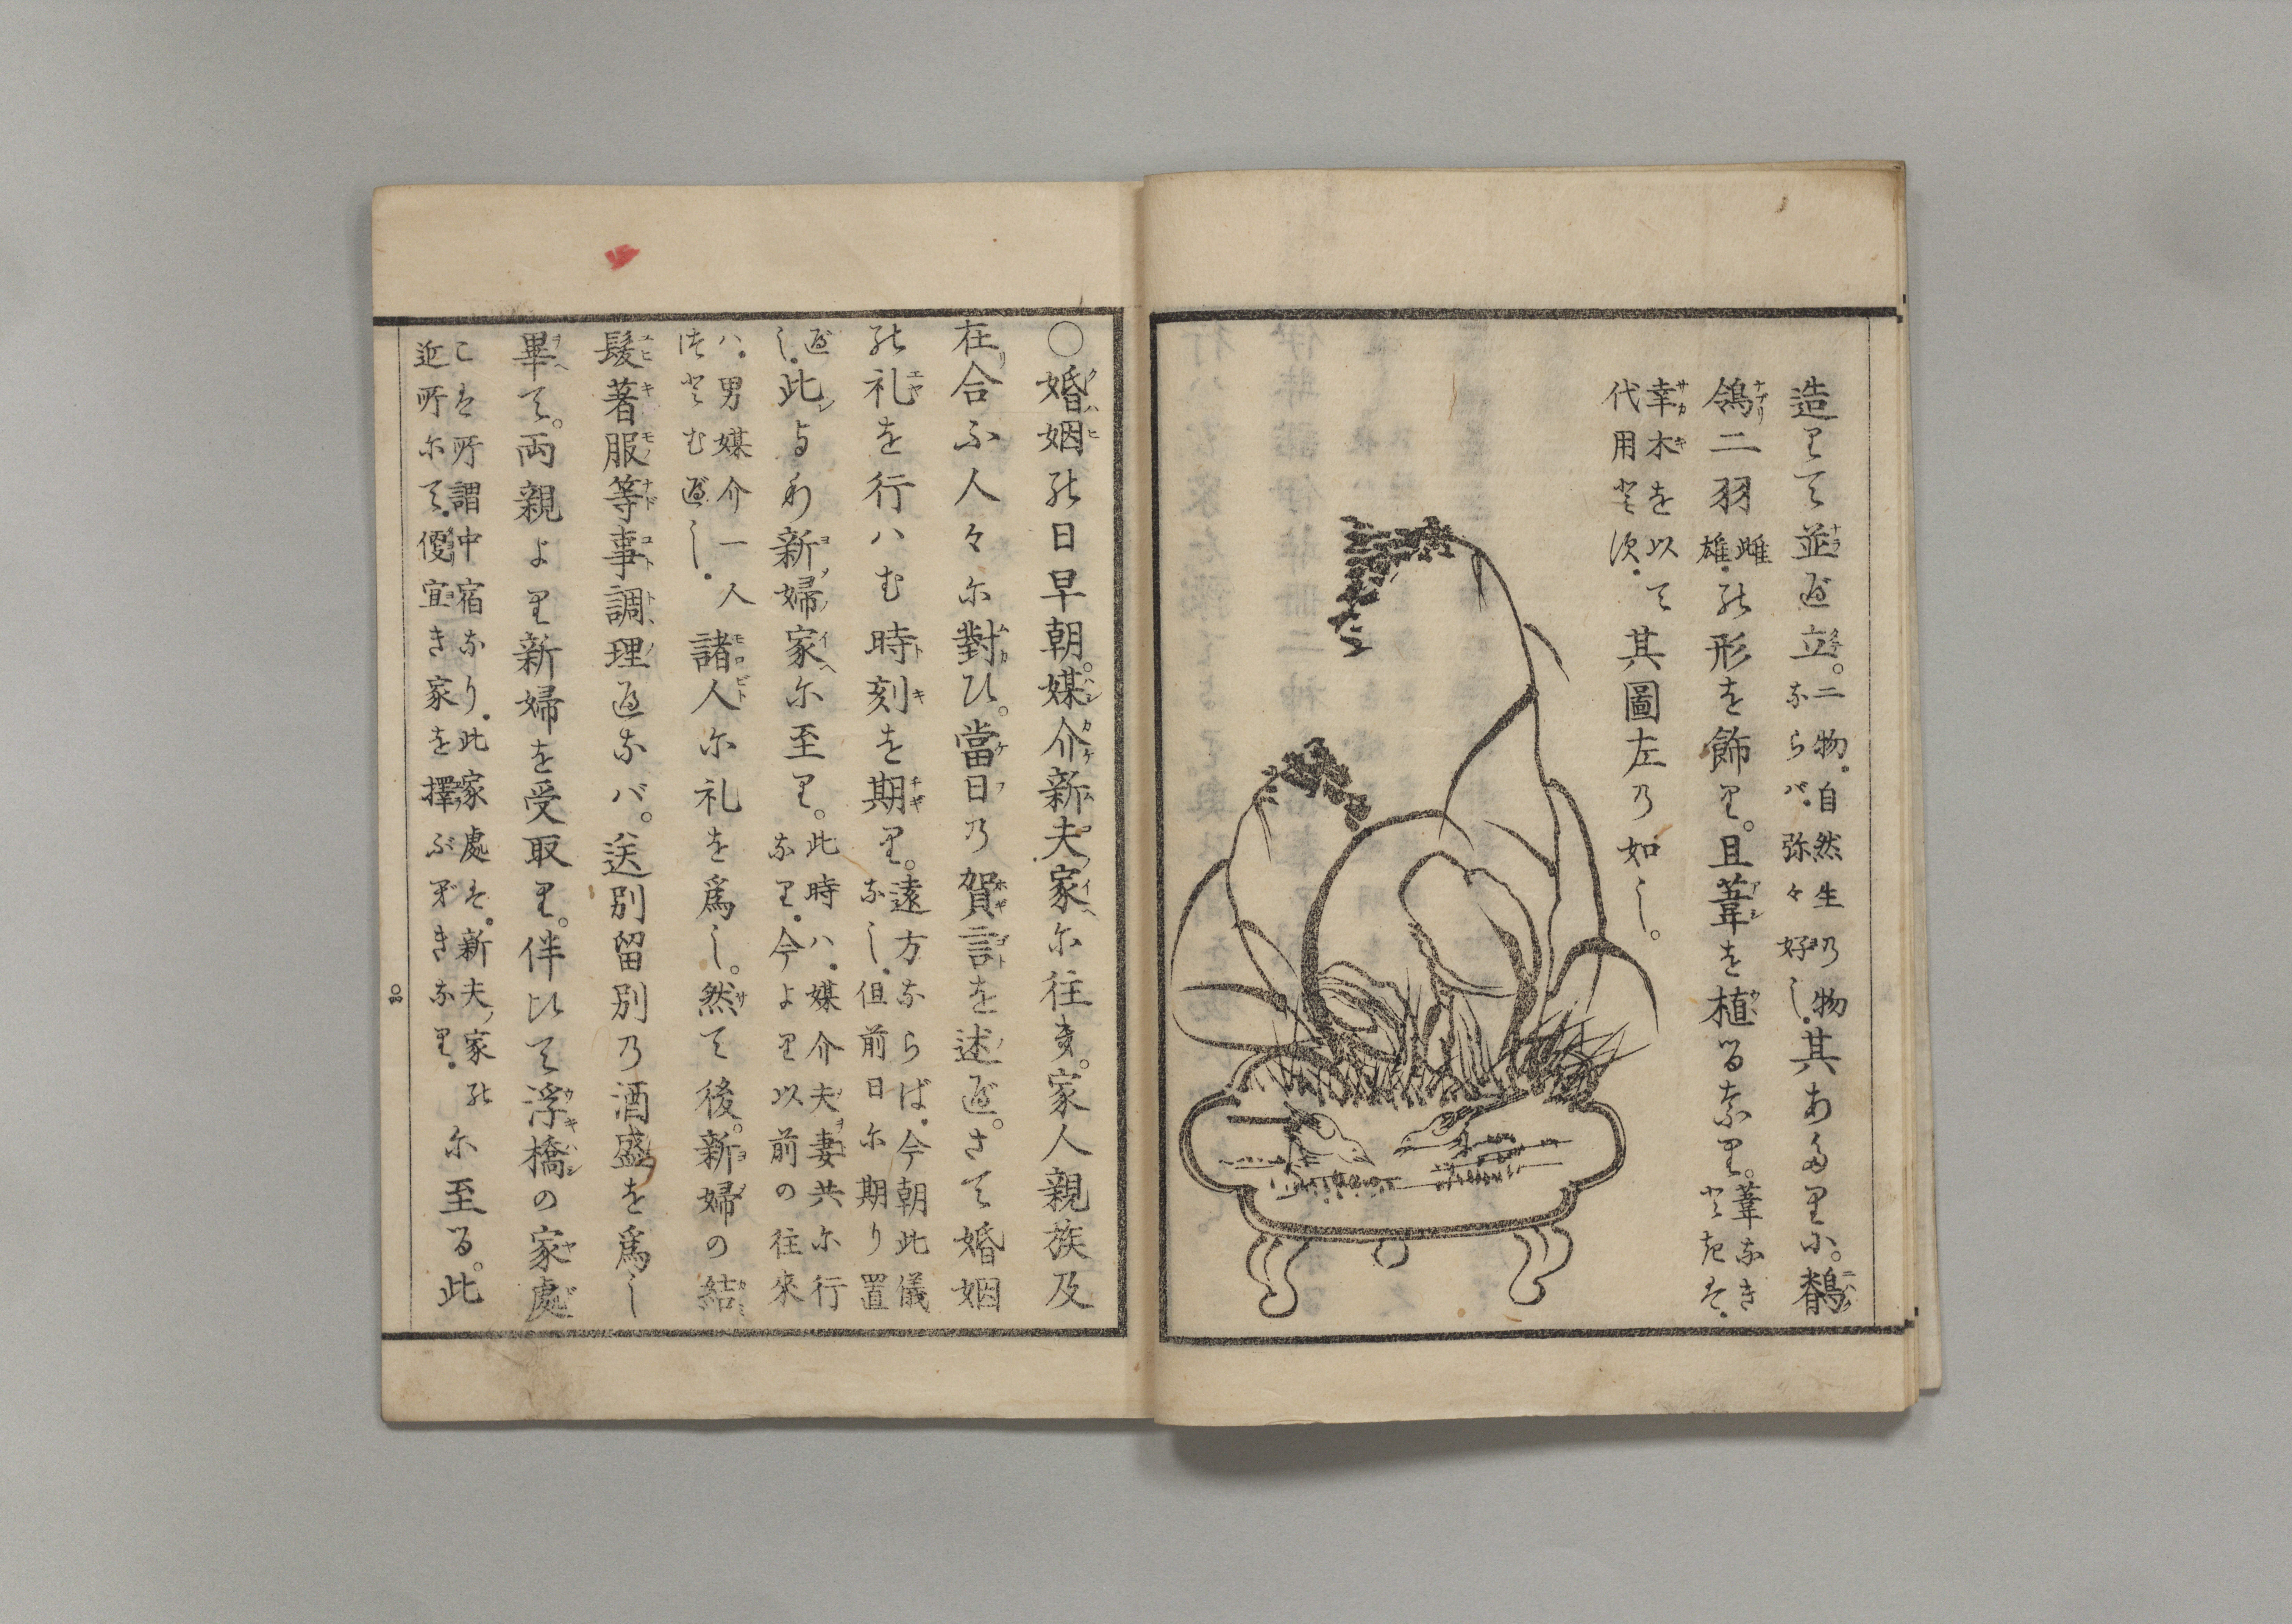 造りて並べ立。二物。自然生の物
ならバ。弥々好し。其あたりに。鶺
鴒二羽雌雄。の形を飾り。且葦を植るなり。葦なき
ときは。
幸木を以て
代用とす。其圖左の如し。
○婚姻の日早朝。媒介新夫家に往き。家人親族及
在合ふ人々に對ひ。當日の賀言を述べ。さて婚姻
の礼を行ハむ時刻を期り。遠方ならば。今朝此儀
なし。但前日に期り置
べし。此より新婦家に至り。此時ハ。媒介夫妻共に行
なり。今よリ以前の往來
ハ。男媒介一人
諸人に礼を爲し。然て後。新婦の結
髪著服等事調理ひなバ。送別留別の酒盛を爲し
畢て。両親より新婦を受取り。伴ひて浮橋の家處
こは所謂中宿なり。此家處は。新夫ノ家の
近所にて。便宜き家を擇ぶべきなり。に至る。此